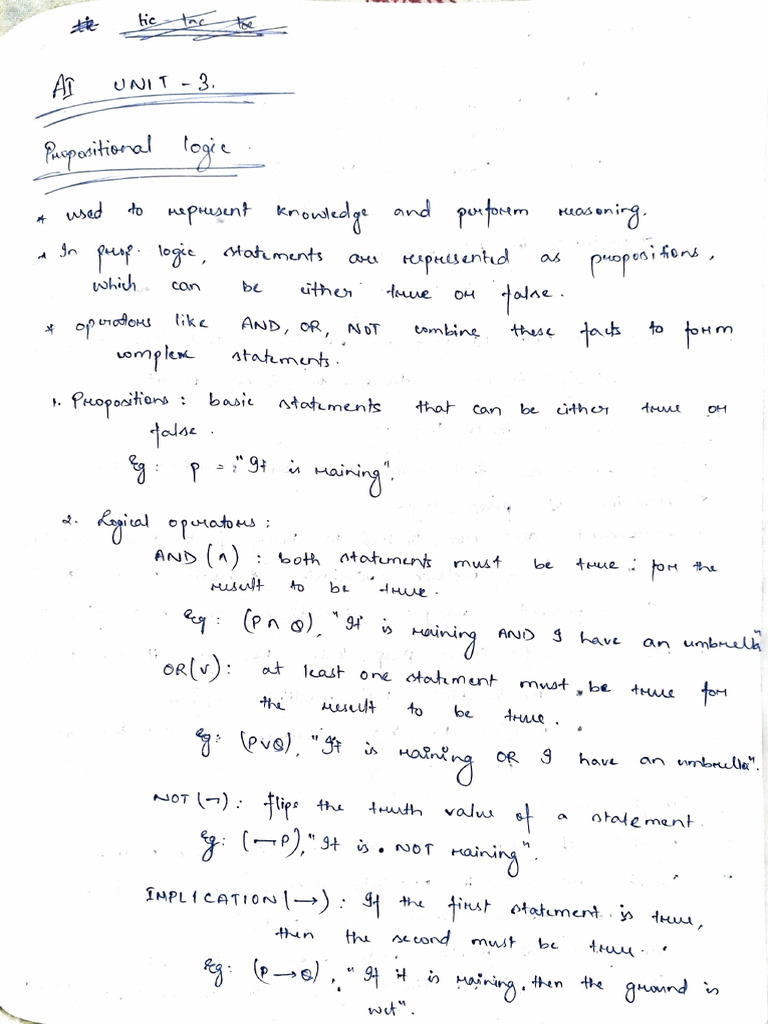 tic tac toe
AI UNIT - 3.
Propositional logic.
* used to represent knowledge and perform reasoning.
* In prop. logic, statements are represented as propositions,
which can be either true or false.
* operators like AND, OR, NOT combine these facts to form
complex statements.
1. Propositions: basic statements that can be either true or
false.
Eg: p = "It is raining".
2. Logical operators:
AND (∧) : both statements must be true : for the
result to be true.
Eg: (P ∧ Q), "It is raining AND I have an umbrella"
OR(∨): at least one statement must be true for
the result to be true.
Eg: (P∨Q), "It is raining OR I have an umbrella".
NOT (¬): flips the truth value of a statement.
Eg: (¬P), "It is NOT raining".
IMPLICATION (→): If the first statement is true,
then the second must be true.
Eg: (P → Q), "If it is raining, then the ground is
wet".